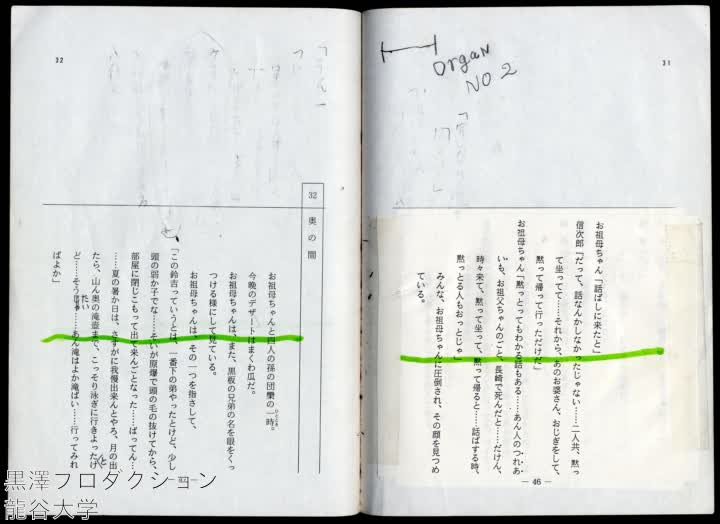 31
Organ
NO 2
お祖母ちゃん「話ばしに来たと」
信次郎「だって、話なんかしなかったじゃない……二人共、黙っ
て坐ってて……それから、あのお婆さん、おじぎをして、
黙って帰って行っただけだ」
お祖母ちゃん「黙っとってもわかる話もある……あん人のつれあ
いも、お祖父ちゃんのごと、長崎で死んだと……だけん、
時々来て、黙って坐って、黙って帰ると……話ばする時、
黙っとる人もおっとじゃ」
みんな、お祖母ちゃんに圧倒され、その顔を見つめ
ている。
— 46 —
32
32
奥の間
お祖母ちゃんと四人の孫の団欒の一時。
ひととき
今晩のデザートはまくわ瓜だ。
お祖母ちゃんは、また、黒板の兄弟の名を眼をくっ
つける様にして見ている。
お祖母ちゃんは、その一つを指さして、
「この鈴吉っていうとは、一番下の弟やったとけど、少し
頭の弱か子でな……そいが原爆で頭の毛の抜けてから、
部屋に閉じこもって出て来んごとなった……ばってん…
……夏の暑か日は、さすがに我慢出来んとやろ、月の出
たら、山ん奥の滝壺まで、こっそり泳ぎに行きよったけ
ど……そう
……あん滝はよか滝ばい……行ってみれ
ばよか」
黒澤プロダクション
龍谷大学